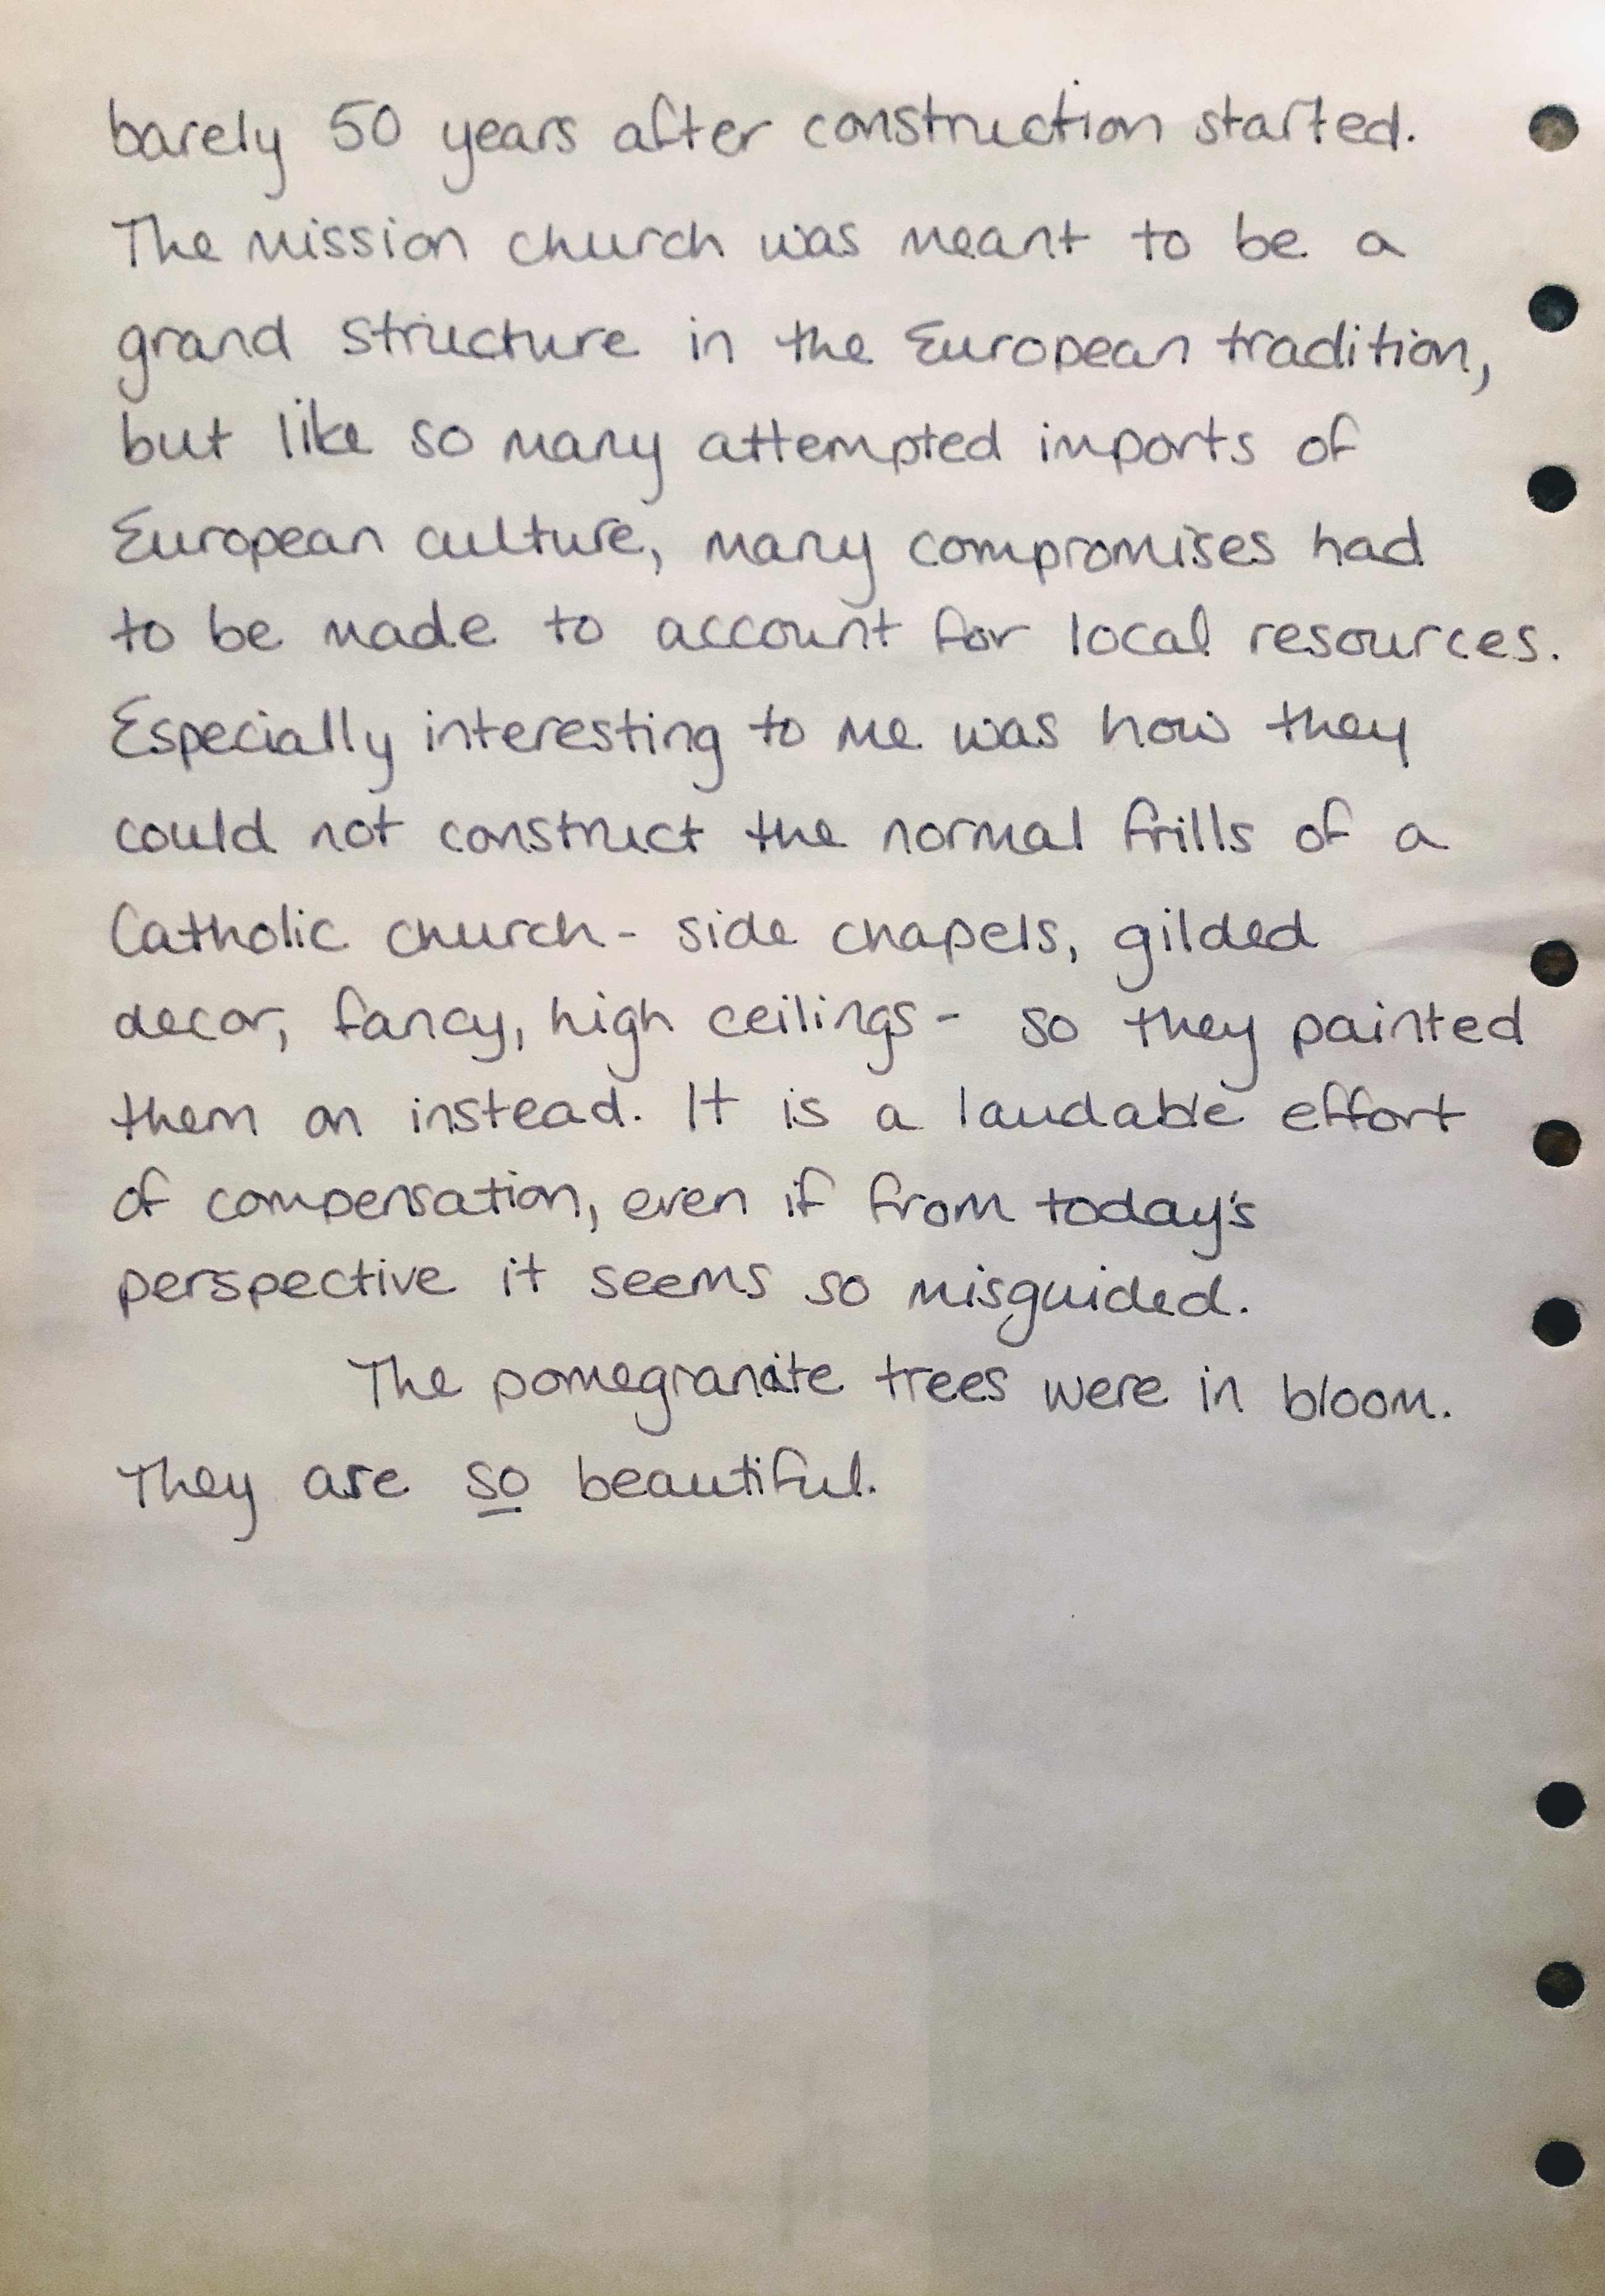 barely 50 years after construction started.
The mission church was meant to be a
grand structure in the European tradition,
but like so many attempted imports of
European culture, many compromises had
to be made to account for local resources.
Especially interesting to me was how they
could not construct the normal frills of a
Catholic church - side chapels, gilded
decor, fancy, high ceilings - so they painted
them on instead. It is a laudable effort
of compensation, even if from today's
perspective it seems so misguided.
The pomegranate trees were in bloom.
They are so beautiful.